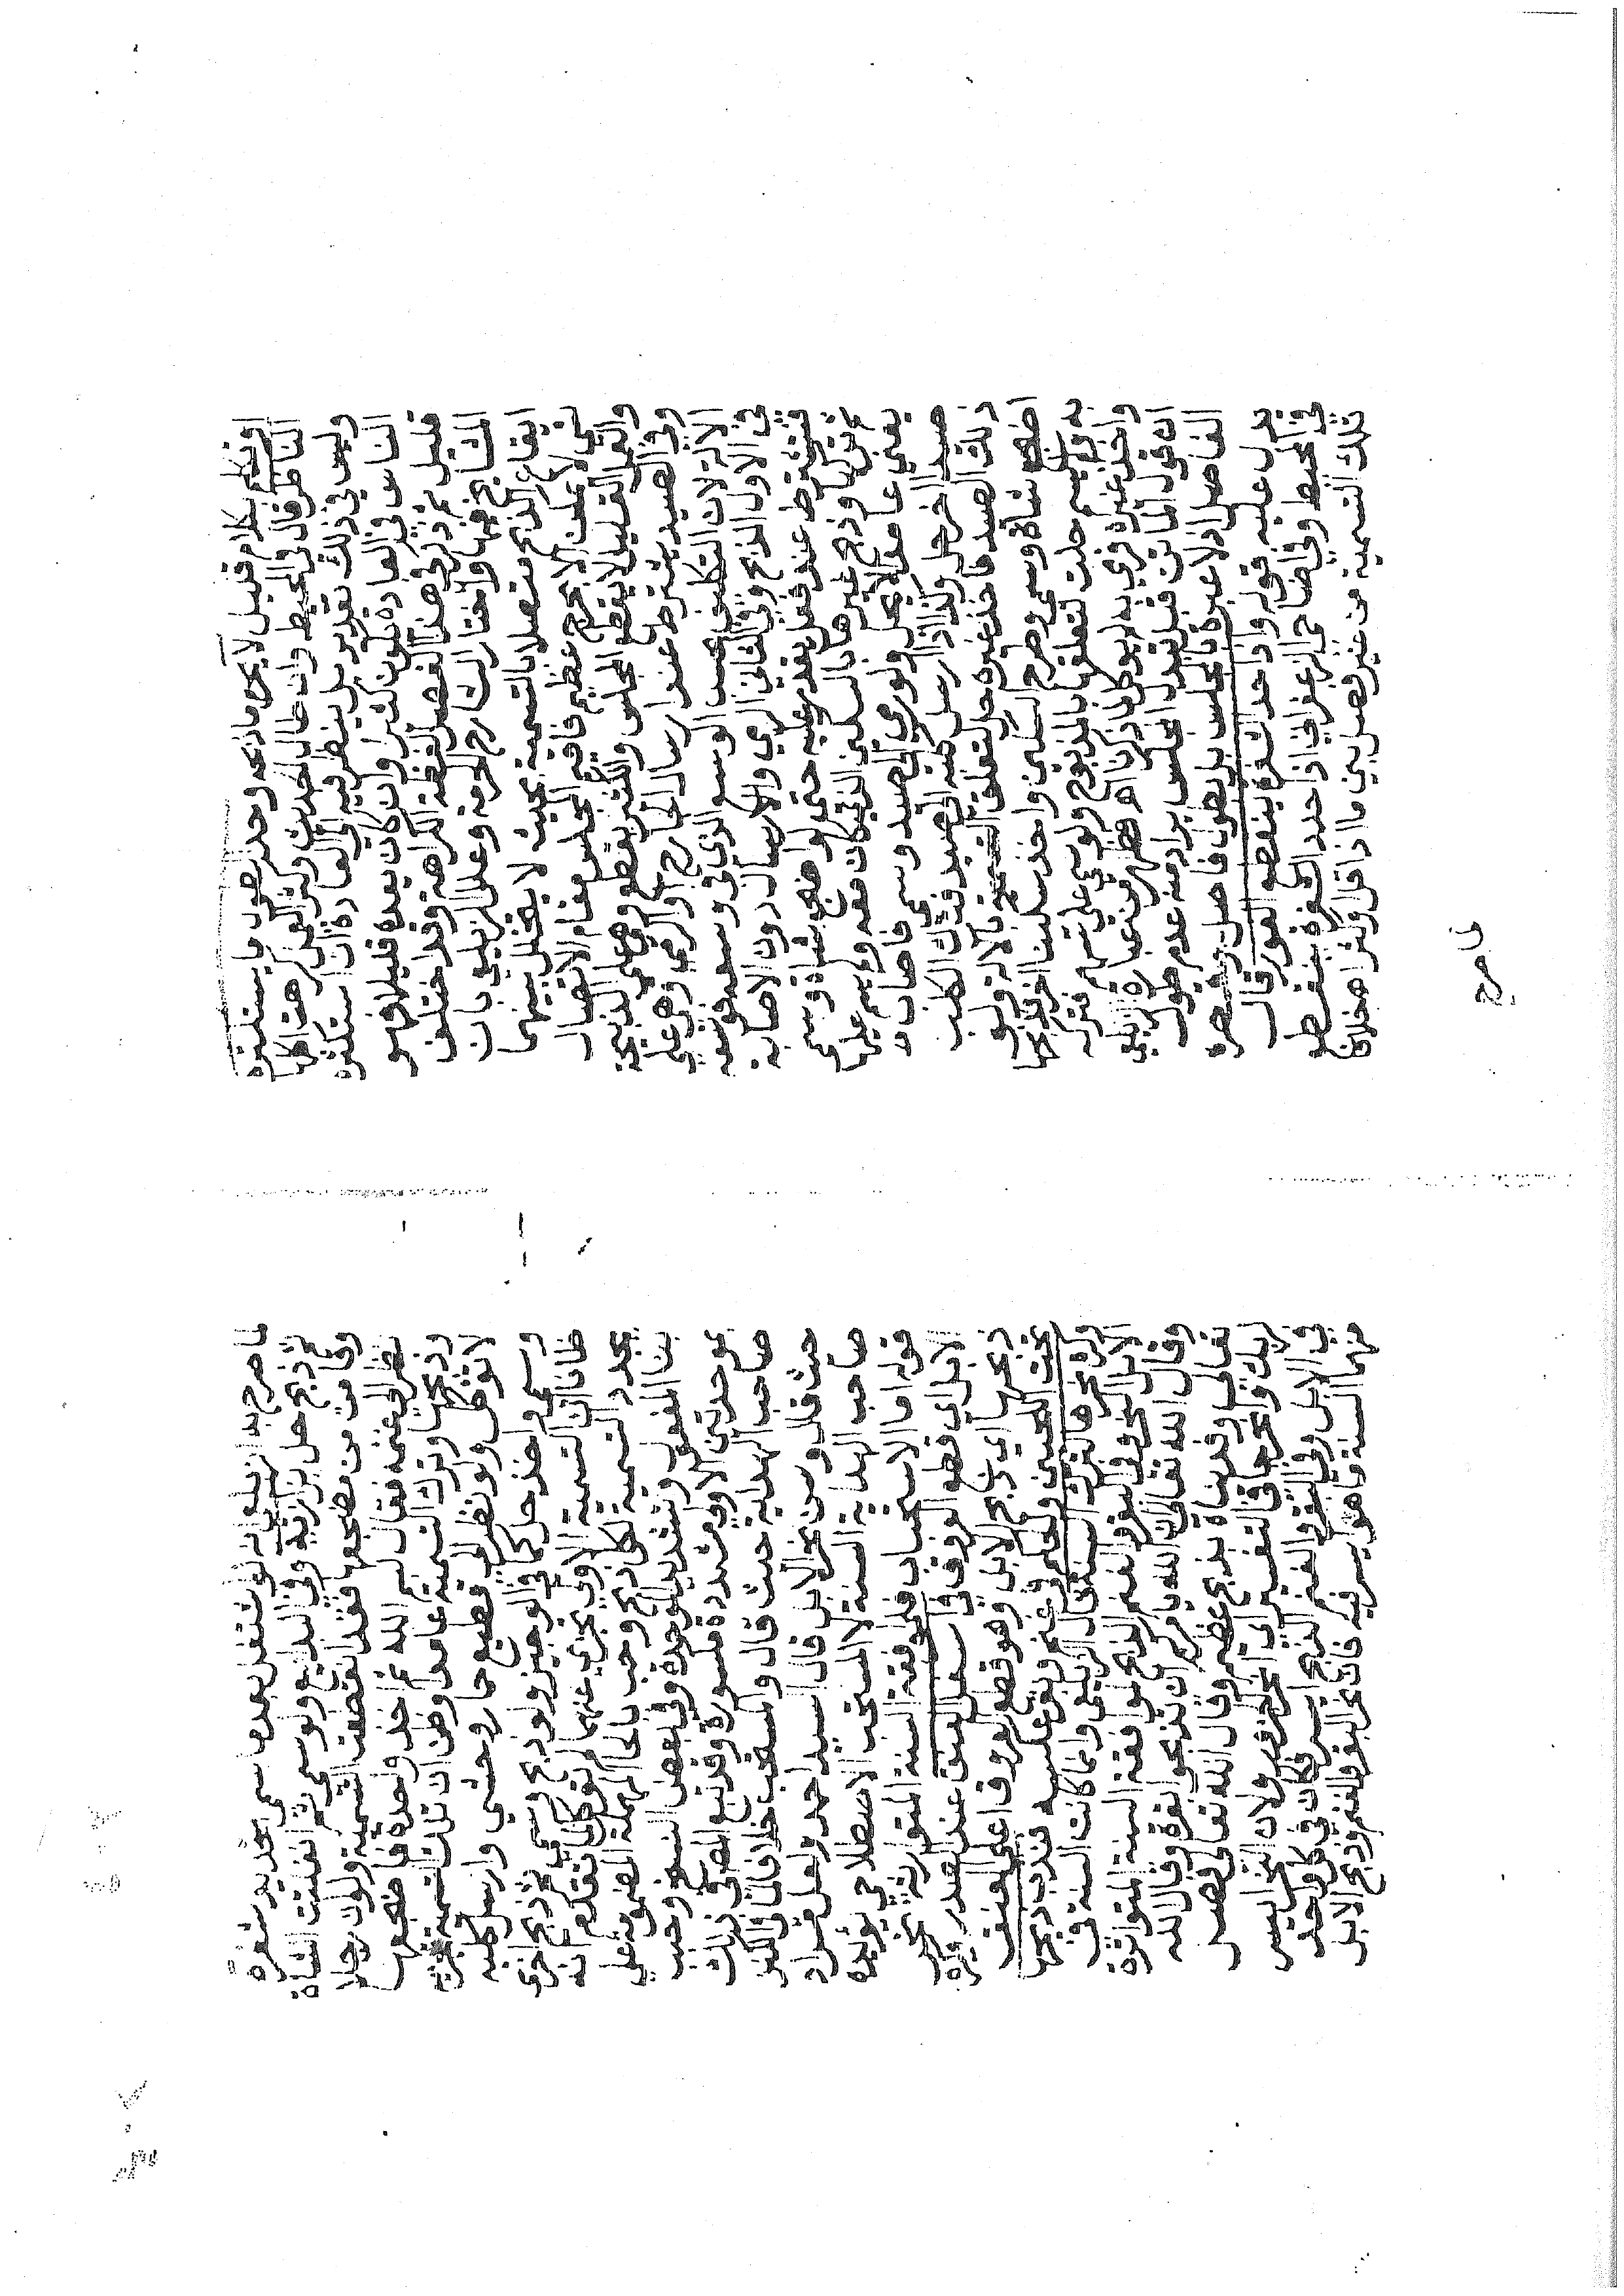 او تكلم بكلام قليل لا يحرم ما ذبحه وحد الطول ما يستكثره
الناظر قال في المحيط وان طال الحديث وكثر العمل كرهت اكلها
وليس في ذلك تقدير بل ينظر فيه الى العادة ان استكثره
الناس في العادة يكون كثيرا وان كان يعده قليلا فهو
قليل ثم ذكر في هذا الفصل لفظة الكراهة وقد اختلف
المشايخ فيها واختار الشارح الحرمة وعلل الزيلعي بان
ايقاع الذبح متصلا بالتسمية بحيث لا يتخلل بينهما
شي لا يمكن الا بحرج عظيم فاقيم المجلس مقام الاتصال
والعمل القليل لا يقطع المجلس والكثير يقطع وهي على الذبيحة
وفي الصيد يشترط عند ارسال الجارح او الرمي وهي على
الآلة لان التكليف بحسب الوسع والذي في وسعه
في الاول الذبح وفي الثاني الرمي والارسال دون الاصابة
فتشترط عند فعل يقدر عليه حتى لو اضجع شاة وسمى
ثم تركها وذبح غيرها بالسكين الذي كان معه ولم يسم عليها
يعني عامدا لا يحل ولو رمى الى صيد وسمى فاصاب
صيدا اخر حل وكذا اذا ارسل كلبه الى صيد فترك الكلب
ذلك الصيد فاخذ غيره حل لتعلق التسمية بالآلة ولو
اضجع شاة وسمى وطرح السكين واخذ سكينا اخر فذبحها
به ولم يسم حلت لتعلقها بالمذبوح ولو سمى على سهم فترك
واخذ غيره فرمى به لم يوكل لما ذكرنا اه فظهر من عبارة الزيلعي
ان قول الماتن قبل تبدل المجلس يراد منه عدم طول
الفاصل اذ لا عبرة بالمجلس بل بطول فاصل وقصره
يدل عليه قوله واذا حدد الشفرة ينقطع الفور قال
في المحيط وفي اضاحي الزعفراني اذا حدد الشفرة ينقطع
تلك التسمية من غير فصل بين ما اذا قل او كثر اه خلاف
لما صرح
لما صرح به الزيلعي انه لو اشتغل بعد ما سمى بتحديد شفرة
ثم ذبح حل بزازية وفي البدايع ولو سمى ثم انفلتت الشاة
وقامت من مضجعها فقد انقطعت التسمية ولو ان رجلا
نظر الى غنمه فقال بسم الله ثم اخذ واحدة فاضجعها
وذبحها وترك التسمية عامدا وظن ان تلك التسمية تجزيه
لا توكل ولو نظر الى قطيع حمار وحشي وارسل كلبه
وسمى واخذ حل كما في الوجيز ولو ذبح وسمى ثم ذبح اخرى
ظانا ان التسمية الاولى تجزي عنهما لم توكل لما تقدم انه
يجدد التسمية لكل ذبح وحبب بالحاء المهملة المضمومة على
بنا المفعول وتشديد الموحدة وفي بعض النسخ وحبب
بموحدتين الاولى مشددة مكسورة وقد تبع المصنف في ذلك
صاحب الهداية حيث قال والمستحب خلافا لما في الكنز
حيث قال وسن نحر الابل قال السيد احمد ولعل مراد
صاحب الهداية السنة لا المستحب الاصطلاحي يؤيده
قوله اما الاستحباب فلموافقة السنة المتوارثة نحر
الابل اي قطع العروق في اسفل العنق عند الصدر وكره
ذبحها اي ذبح الابل وهو قطع العروق اعلى العنق
تحت اللحيين والحكم في غنم وبقر عكسه فندب ذبحها
وكره نحرها لترك السنة قال الزيلعي وانما كانت السنة في
الابل النحر وفي البقر والغنم الذبح لموافقة السنة المتواترة
وقال الله تعالى ان الله يامركم ان تذبحوا بقرة وقال الله
تعالى وفديناه بذبح عظيم وقال الله تعالى فصل
لربك وانحر جا في التفسير اي انحر الجزور ولان النحر ايسر
في الابل وفي البقر والغنم الذبح ايسر فكان في كل واحد
منهما السنة ما هو ايسر فيه فان نحر البقر والغنم وذبح الابل